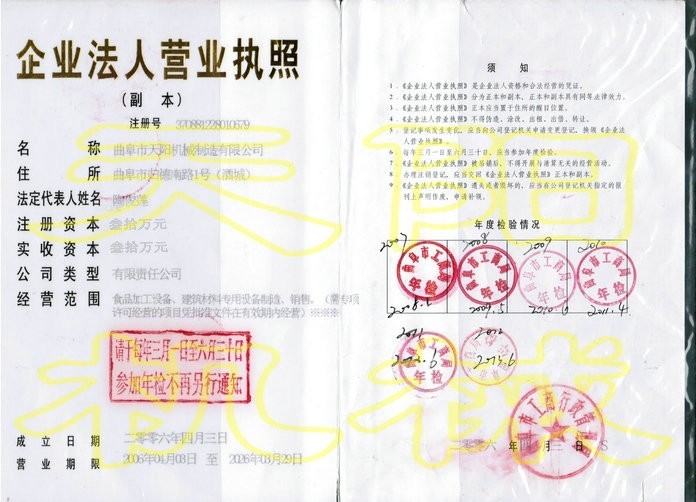 企业法人营业执照
（副 本）
注册号 370881228010679
名 称 曲阜市天阳机械制造有限公司
住 所 曲阜市归德南路1号（酒城）
法定代表人姓名
注册资本 叁拾万元
实收资本 叁拾万元
公司类型 有限责任公司
经营范围 食品加工设备、建筑材料专用设备制造、销售。（需专项
许可经营的项目凭批准文件在有效期内经营）※※※
请于每年三月一日至六月三十日
参加年检不再另行通知
成立日期 二零零六年四月三日
营业期限 2006年04月03日 至 2026年03月29日
须 知
1．《企业法人营业执照》是企业法人资格和合法经营的凭证。
2．《企业法人营业执照》分为正本和副本，正本和副本具有同等法律效力。
3．《企业法人营业执照》正本应当置于住所的醒目位置。
4．《企业法人营业执照》不得伪造、涂改、出租、出借、转让。
5．登记事项发生变化，应当向公司登记机关申请变更登记，换领《企业法
人营业执照》。
6．每年三月一日至六月三十日，应当参加年度检验。
7．《企业法人营业执照》被吊销后，不得开展与清算无关的经营活动。
8．办理注销登记，应当交回《企业法人营业执照》正本和副本。
9．《企业法人营业执照》遗失或者毁坏的，应当在公司登记机关指定的报
刊上声明作废，申请补领。
年度检验情况
2007 2008 2009 2010
曲阜市工商局 年检
曲阜市工商局 年检
曲阜市工商局 年检
曲阜市工商局 年检
2008.6 2009.5 2010.6 2011.4
2011 2012
曲阜市工商局 年检
2013.6
曲阜市工商行政管理局
二零零六 年 四 月 三 日
天阳
机械